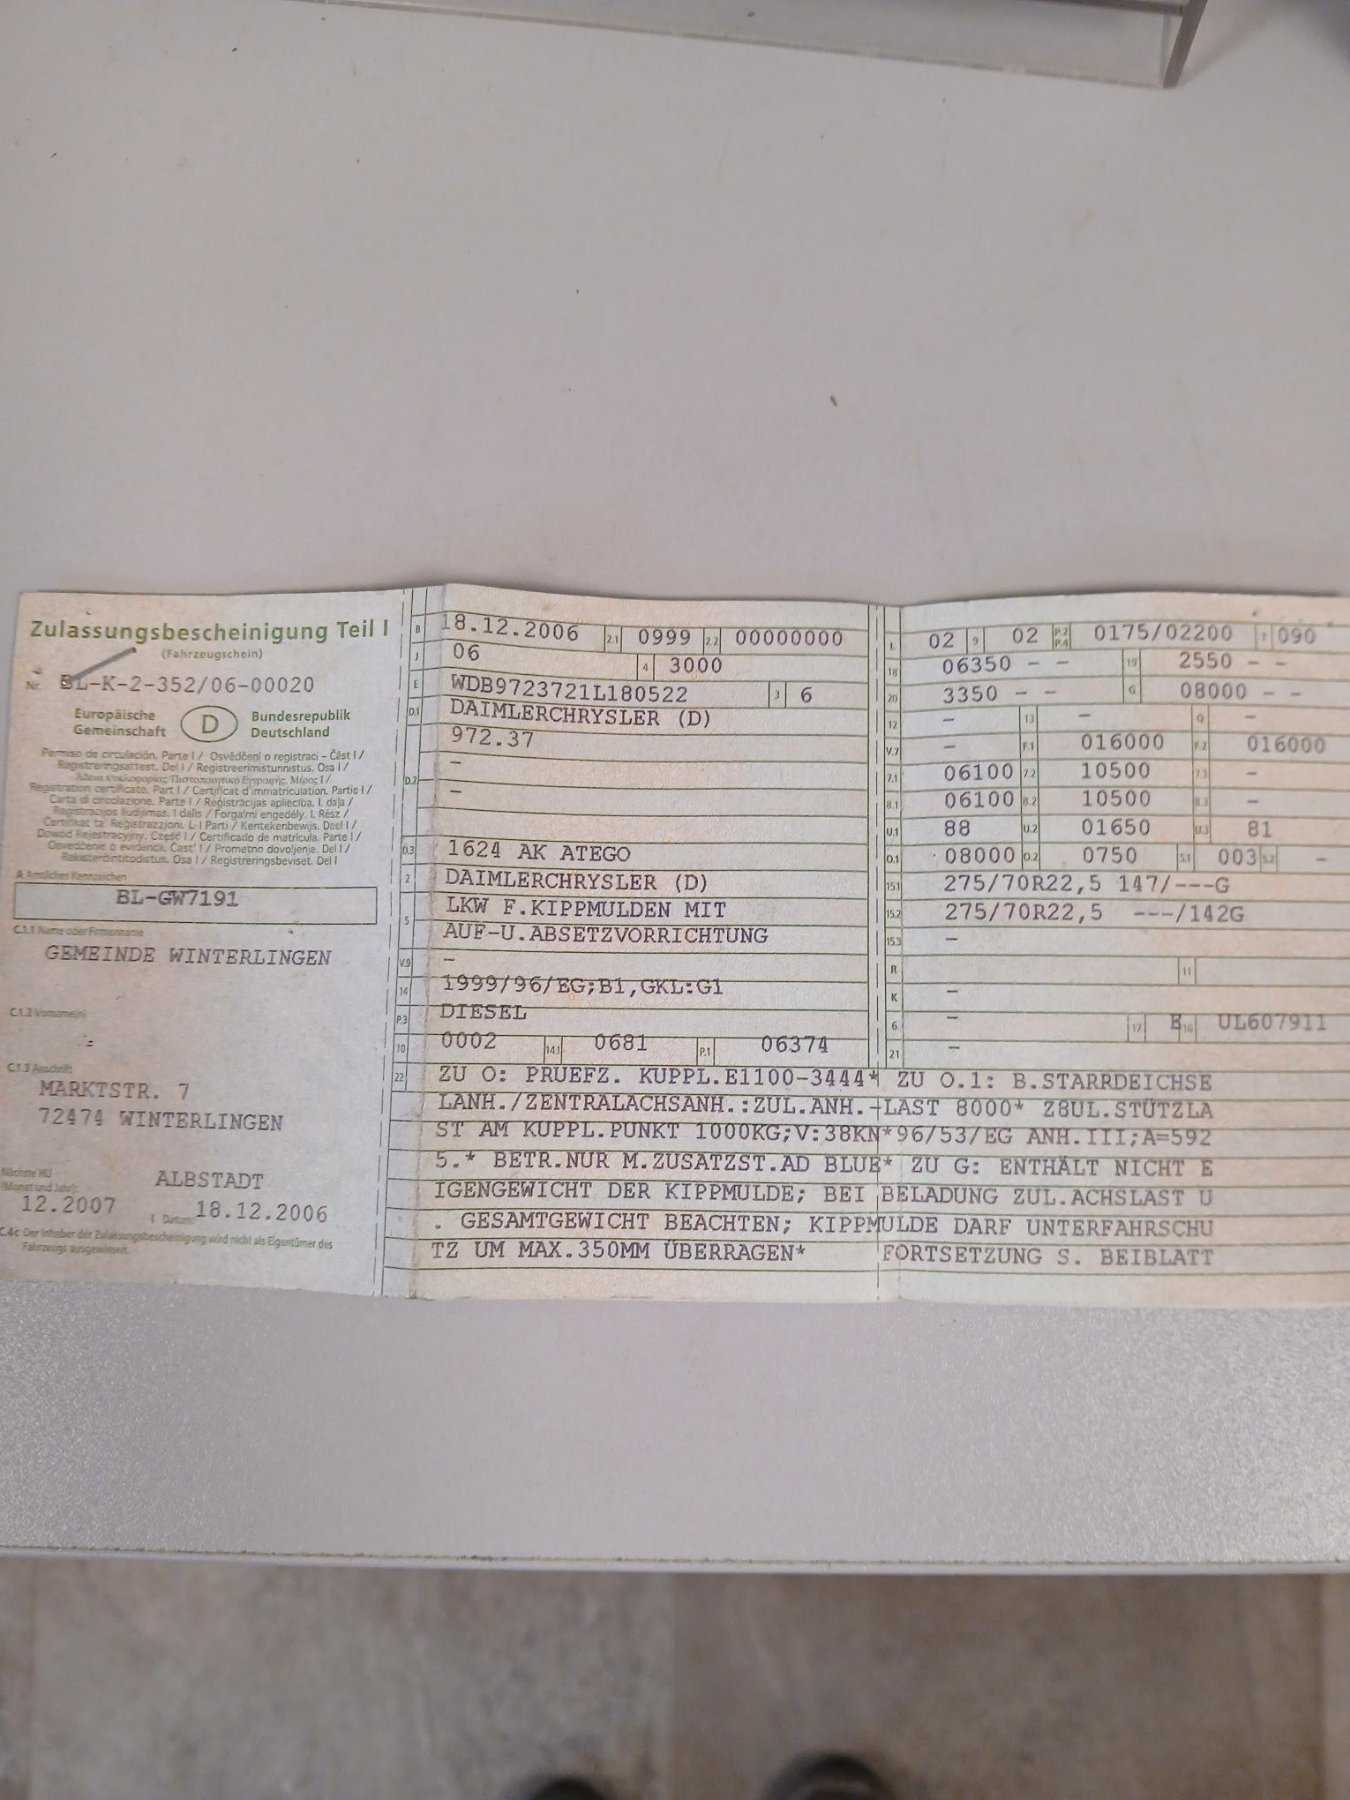 Zulassungsbescheinigung Teil I
(Fahrzeugschein)
Nr. BL-K-2-352/06-00020
Europäische Gemeinschaft
D
Bundesrepublik Deutschland
Permiso de circulación. Parte I / Osvědčení o registraci - Část I /
Registreringsattest. Del I / Registreerimistunnistus. Osa I /
Registration certificate. Part I / Certificat d'immatriculation. Partie I /
Carta di circolazione. Parte I / Reģistrācijas apliecība. I. daļa /
Registracijos liudijimas. I dalis / Forgalmi engedély. I. Rész /
Ċertifikat ta' Reġistrazzjoni. L-I Parti / Kentekenbewijs. Deel I /
Dowód Rejestracyjny. Część I / Certificado de matrícula. Parte I /
Osvedčenie o evidencii. Časť I / Prometno dovoljenje. Del I /
Rekisteröintitodistus. Osa I / Registreringsbeviset. Del I
A Amtliches Kennzeichen
BL-GW7191
C.1.1 Name oder Firmenname
GEMEINDE WINTERLINGEN
C.1.2 Vorname(n)
C.1.3 Anschrift
MARKTSTR. 7
72474 WINTERLINGEN
Nächste HU
(Monat und Jahr)
ALBSTADT
12.2007
I Datum: 18.12.2006
C.4c Der Inhaber der Zulassungsbescheinigung wird nicht als Eigentümer des
Fahrzeugs ausgewiesen.
B 18.12.2006 2.1 0999 2.2 00000000
J 06 4 3000
E WDB9723721L180522 3 6
D.1 DAIMLERCHRYSLER (D)
972.37
D.2 -
-
D.3 1624 AK ATEGO
2 DAIMLERCHRYSLER (D)
5 LKW F.KIPPMULDEN MIT
AUF-U.ABSETZVORRICHTUNG
V.9 -
14 1999/96/EG;B1,GKL:G1
P.3 DIESEL
10 0002 14.1 0681 P.1 06374
L 02 9 02 P.2 P.4 0175/02200 T 090
18 06350 - - 19 2550 - -
20 3350 - - G 08000 - -
12 - 13 - Q -
V.7 - F.1 016000 F.2 016000
7.1 06100 7.2 10500 7.3 -
8.1 06100 8.2 10500 8.3 -
U.1 88 U.2 01650 U.3 81
O.1 08000 O.2 0750 S.1 003 S.2 -
15.1 275/70R22,5 147/---G
15.2 275/70R22,5 ---/142G
15.3 -
R 11
K -
6 - 17 E 16 UL607911
21 -
22 ZU O: PRUEFZ. KUPPL.E1100-3444* ZU O.1: B.STARRDEICHSE
LANH./ZENTRALACHSANH.:ZUL.ANH.-LAST 8000* Z8UL.STÜTZLA
ST AM KUPPL.PUNKT 1000KG;V:38KN*96/53/EG ANH.III;A=592
5.* BETR.NUR M.ZUSATZST.AD BLUE* ZU G: ENTHÄLT NICHT E
IGENGEWICHT DER KIPPMULDE; BEI BELADUNG ZUL.ACHSLAST U
. GESAMTGEWICHT BEACHTEN; KIPPMULDE DARF UNTERFAHRSCHU
TZ UM MAX.350MM ÜBERRAGEN* FORTSETZUNG S. BEIBLATT